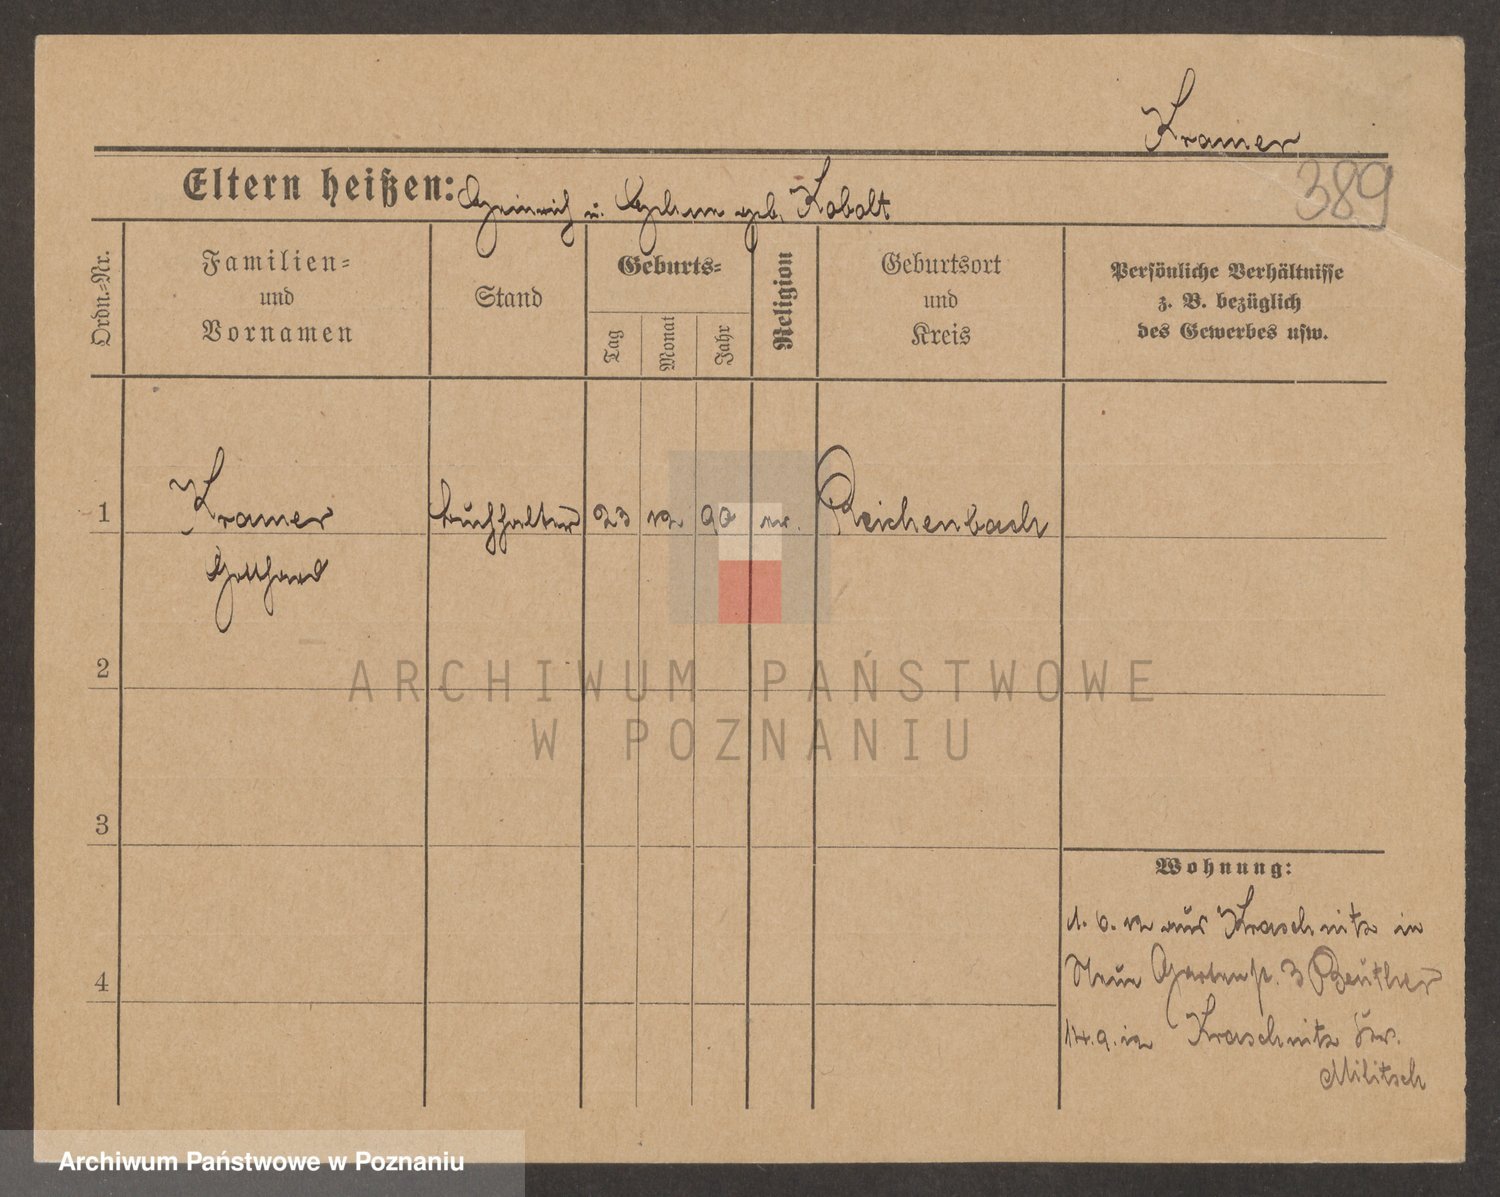 Kramer
389
Eltern heißen: Heinrich u. geb. Kobolt
Ordn.-Nr.
Familien- und Vornamen
Stand
Geburts-
Tag
Monat
Jahr
Religion
Geburtsort und Kreis
Persönliche Verhältnisse z. B. bezüglich des Gewerbes usw.
1 Kramer Buchhalter 23 12 90 Reichenbach
Gotthard
2
3
4
Wohnung:
1. 6. 12 aus Kraschnitz in
Neue Gartenstr. 3 Beuther
14. 9. 12 Kraschnitz Kr.
Militsch
ARCHIWUM PAŃSTWOWE
W POZNANIU
Archiwum Państwowe w Poznaniu